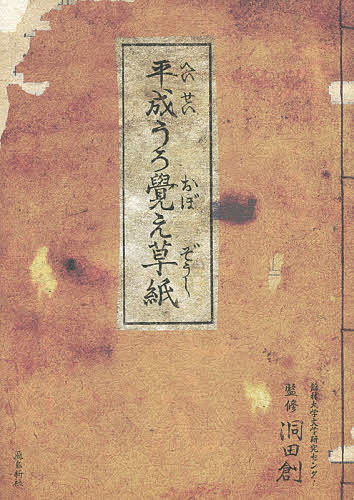 平成うろ覺え草紙
へいせい
おぼ
ぞうし
大学文学研究センター
監修 洞田創
飛鳥新社